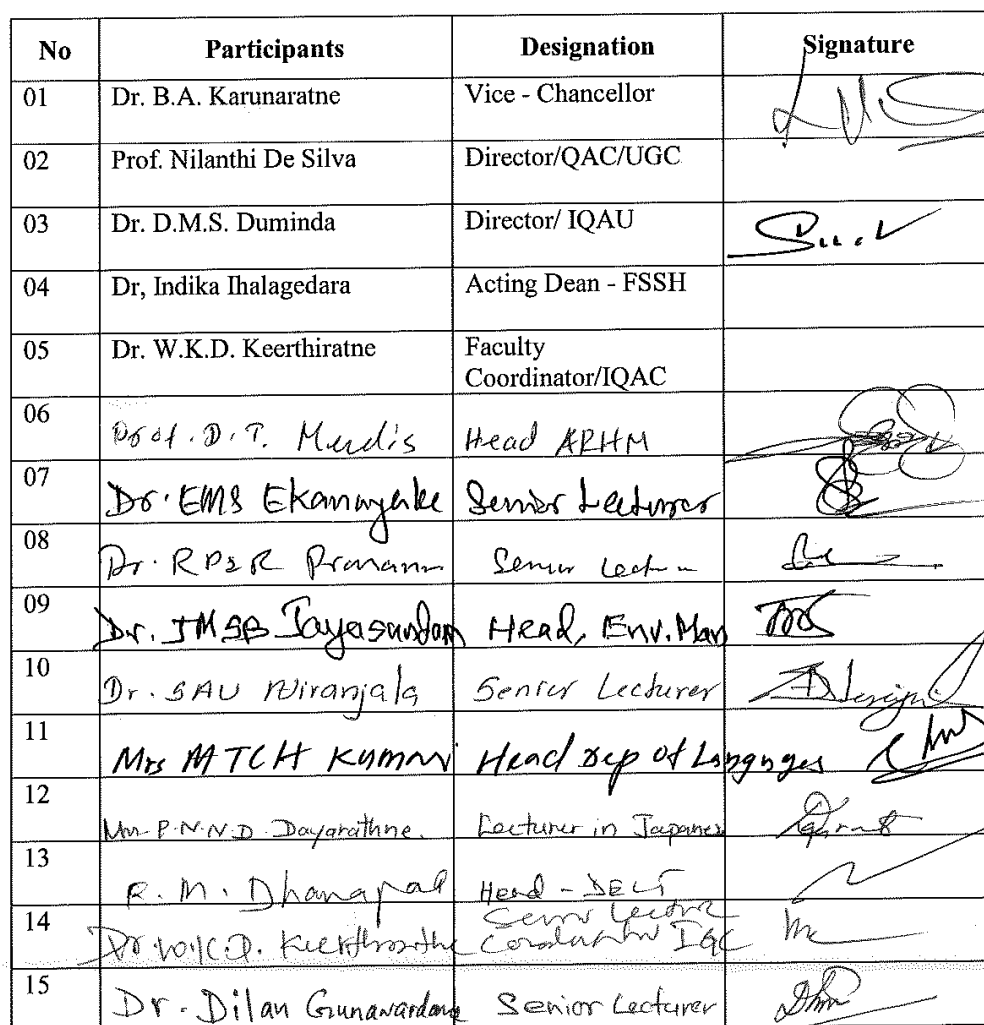 No Participants Designation Signature
01 Dr. B.A. Karunaratne Vice - Chancellor
02 Prof. Nilanthi De Silva Director/QAC/UGC
03 Dr. D.M.S. Duminda Director/ IQAU
04 Dr, Indika Ihalagedara Acting Dean - FSSH
05 Dr. W.K.D. Keerthiratne Faculty
Coordinator/IQAC
06 Prof. D. T. Mendis Head ARHM
07 Dr. EMS Ekanayake Senior Lecturer
08 Dr. RPSR Senior
09 Dr. JMSB Jayasundara Head, Env. Man
10 Dr. SAU Niranjala Senior Lecturer
11 Mrs MTCH Kumari Head Dep of Languages
12 P.N.N.D. Dayarathne. Lecturer in Japanes
13 R. M. Dhanapal Head - DELT
14 Senior Lecturer
Dr W.K.D. Keerthirathe IQC
15 Dr. Dilan Gunawardana Senior Lecturer